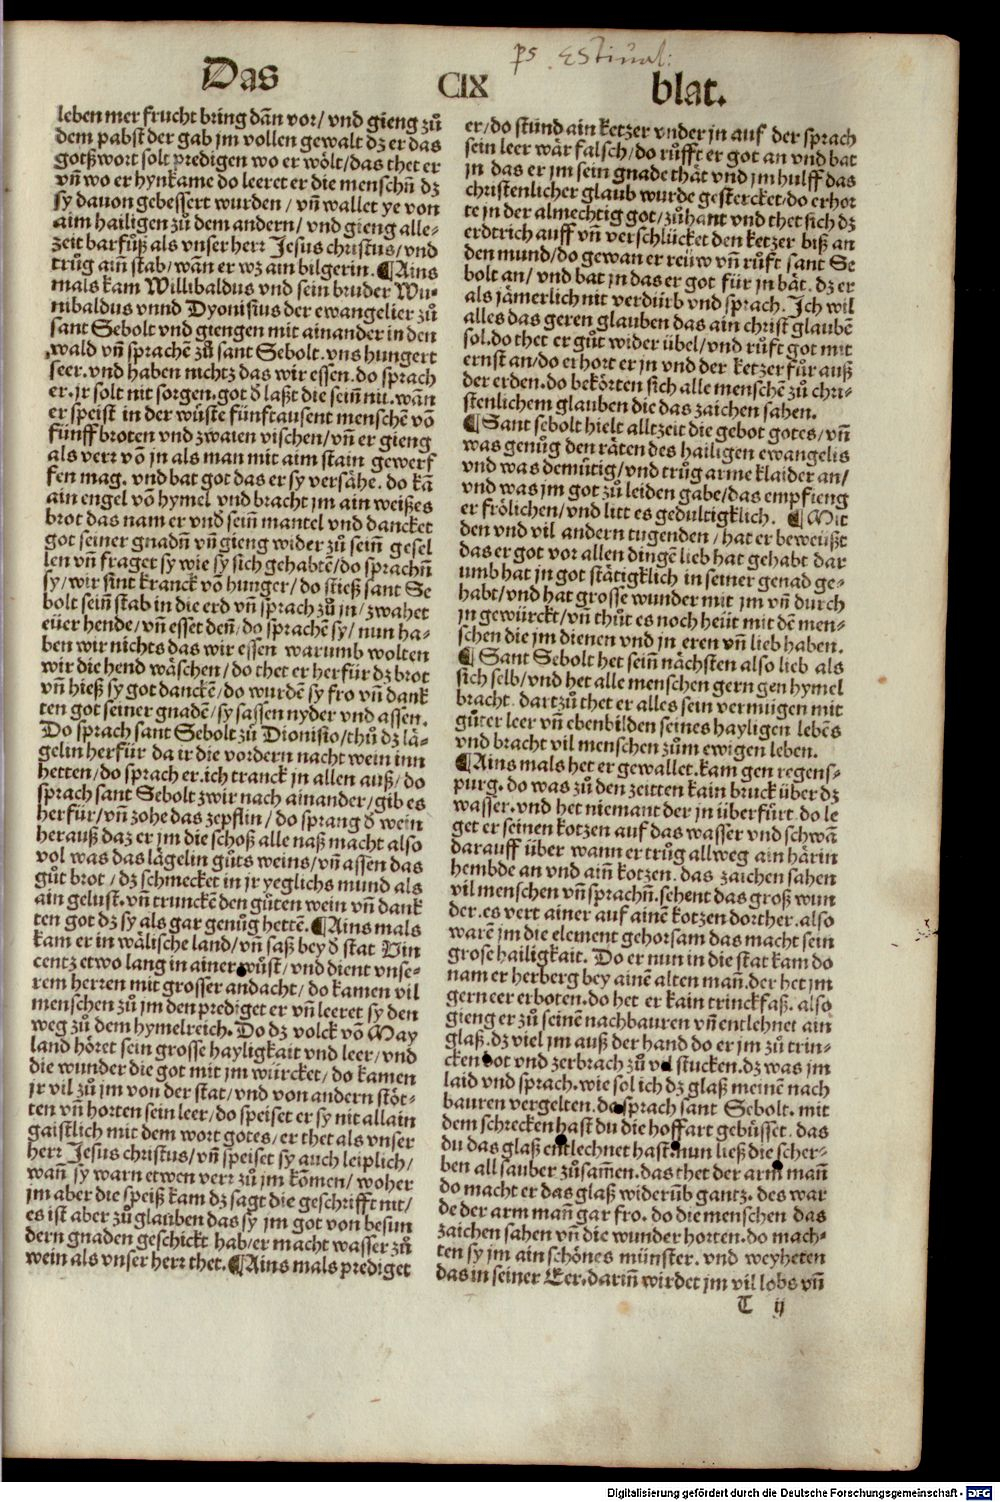 ps Estiual:
Das CIX blat.
leben mer frucht bring dañ vor/ vnd gieng zů
dem pabst der gab jm vollen gewalt dz er das
gotßwort solt predigen wo er wôlt/das thet er
vñ wo er hynkame do leeret er die menschñ dz
sy dauon gebessert wurden / vñ wallet ye von
aim hailigen zů dem andern/ vnd gieng alle-
zeit barfůß als vnser herr Jesus christus/vnd
trůg aiñ stab/wañ er wz ain bilgerin. ¶Ains
mals kam Willibaldus vnd sein bruder Wu-
nibaldus vnnd Dyonisius der ewangelier zů
sant Sebolt vnd giengen mit ainander in den
wald vñ sprachẽ zů sant Sebolt. vns hungert
seer. vnd haben nichtz das wir essen. do sprach
er. jr solt nit sorgen. got ð laßt die seiñ nit. wañ
er speist in der wůste fünftausent menschẽ võ
fünff broten vnd zwaien vischen/vñ er gieng
als verr võ jn als man mit aim stain gewerf
fen mag. vnd bat got das er sy versähe. do kã
ain engel võ hymel vnd bracht jm ain weißes
brot das nam er vnð seiñ mantel vnd dancket
got seiner gnadñ vñ gieng wider zů seiñ gesel
len vñ fraget sy wie sy sich gehabtẽ/do sprachñ
sy/wir sint kranck võ hunger/ do stieß sant Se
bolt seiñ stab in die erd vñ sprach zů jn/ zwahet
eüer hende/vñ esset deñ/do sprachẽ sy/ nun ha-
ben wir nichts das wir essen warumb wolten
wir die hend wäschen/ do thet er herfür dz brot
vñ hieß sy got danckẽ/do wurdẽ sy fro vñ dank
ten got seiner gnadẽ/sy sassen nyder vnd assen.
Do sprach sant Sebolt zů Dionisio/thů dz lä-
gelin herfür da ir die vordern nacht wein inn
hetten/do sprach er. ich tranck jn allen auß/do
sprach sant Sebolt zwir nach ainander/gib es
herfür/vñ zohe das zepflin/ do sprang ð wein
herauß daz er jm die schoß alle naß macht also
vol was das lägelin gůts weins/vñ assen das
gůt brot/ dz schmecket in jr yeglichs mund als
ain gelust. vñ trunckẽ den gůten wein vñ dank
ten got dz sy als gar genůg hettẽ. ¶Ains mals
kam er in wälische land/vñ saß bey ð stat Vin
centz etwo lang in ainer wůst/ vnd dient vnse-
rem herren mit grosser andacht/ do kamen vil
menschen zů jm den prediget er vñ leeret sy den
weg zů dem hymelreich. Do dz volck võ May
land hôret sein grosse hayligkait vnd leer/vnd
die wunder die got mit jm würcket/do kamen
jr vil zů jm von der stat/vnd von andern stôt-
ten vñ horten sein leer/do speiset er sy nit allain
gaistlich mit dem wort gotes/er thet als vnser
herr Jesus christus/vñ speiset sy auch leiplich/
wañ sy warn etwen verr zů jm kõmen/ woher
jm aber die speiß kam dz sagt die geschrifft nit/
es ist aber zů glauben das sy jm got von besun
dern gnaden geschickt hab/er macht wasser zů
wein als vnser herr thet. ¶Ains mals prediget
er/do stund ain ketzer vnder jn auf der sprach
sein leer wär falsch/do růfft er got an vnd bat
jn das er jm sein gnade thät vnd jm hulff das
christenlicher glaub wurde gestercket/do erhor
te jn der almechtig got/zůhant vnd thet sich dz
erdtrich auff vñ verschlücket den ketzer biß an
den mund/do gewan er reüw vñ růft sant Se
bolt an/vnd bat jn das er got für jn bät. dz er
als jämerlich nit verdürb vnd sprach. Ich wil
alles das geren glauben das ain christ glaubẽ
sol. do thet er gůt wider übel/vnd růft got mit
ernst an/do erhort er jn vnd der ketzer fůr auß
der erden. do bekörten sich alle menschẽ zů chri-
stenlichem glauben die das zaichen sahen.
¶Sant sebolt hielt alltzeit die gebot gotes/vñ
was genůg den räten des hailigen ewangelis
vnd was demütig/vnd trůg arme klaider an/
vnd was jm got zů leiden gabe/das empfieng
er frôlichen/vnd litt es gedultigklich. ¶Mit
den vnd vil andern tugenden / hat er beweüßt
das er got vor allen dingẽ lieb hat gehabt dar
umb hat jn got stätigklich in seiner genad ge-
habt/vnd hat grosse wunder mit jm vñ durch
jn gewürckt/vñ thůt es noch heüt mit dẽ men-
schen die jm dienen vnd jn eren vñ lieb haben.
¶Sant Sebolt het seiñ nächsten also lieb als
sich selb/vnd het alle menschen gern gen hymel
bracht. dartzů thet er alles sein vermügen mit
gůter leer vñ ebenbilden seines hayligen lebẽs
vnd bracht vil menschen zům ewigen leben.
¶Ains mals het er gewallet. kam gen regens-
purg. do was zů den zeitten kain bruck über dz
wasser. vnd het niemant der jn überfürt. do le
get er seinen kotzen auf das wasser vnd schwã
darauff über wann er trůg allweg ain härin
hembde an vnd aiñ kotzen. das zaichen sahen
vil menschen vñ sprachñ. sehent das groß wun
der. es vert ainer auf ainẽ kotzen dorther. also
warẽ jm die element gehorsam das macht sein
grose hailigkait. Do er nun in die stat kam do
nam er herberg bey ainẽ alten mañ. der het jm
gern eer erboten. do het er kain trinckfaß. also
gieng er zů seinẽ nachbauren vñ entlehnet ain
glaß. dz viel jm auß der hand do er jm zů trin-
cken bot vnd zerbrach zů vil stucken. dz was jm
laid vnd sprach. wie sol ich dz glaß meinẽ nach
bauren vergelten. do sprach sant Sebolt. mit
dem schrecken hast du die hoffart gebüsset. das
du das glaß entlechnet hast. nun ließ die scher-
ben all sauber zůsamẽn. das thet der arm mañ
do macht er das glaß widerũb gantz. des war
de der arm mañ gar fro. do die menschen das
zaichen sahen vñ die wunder horten. do mach-
ten sy jm ain schönes münster. vnd weyheten
das in seiner Eer. dariñ wirdet jm vil lobs vñ
T ij
Digitalisierung gefördert durch die Deutsche Forschungsgemeinschaft - DFG